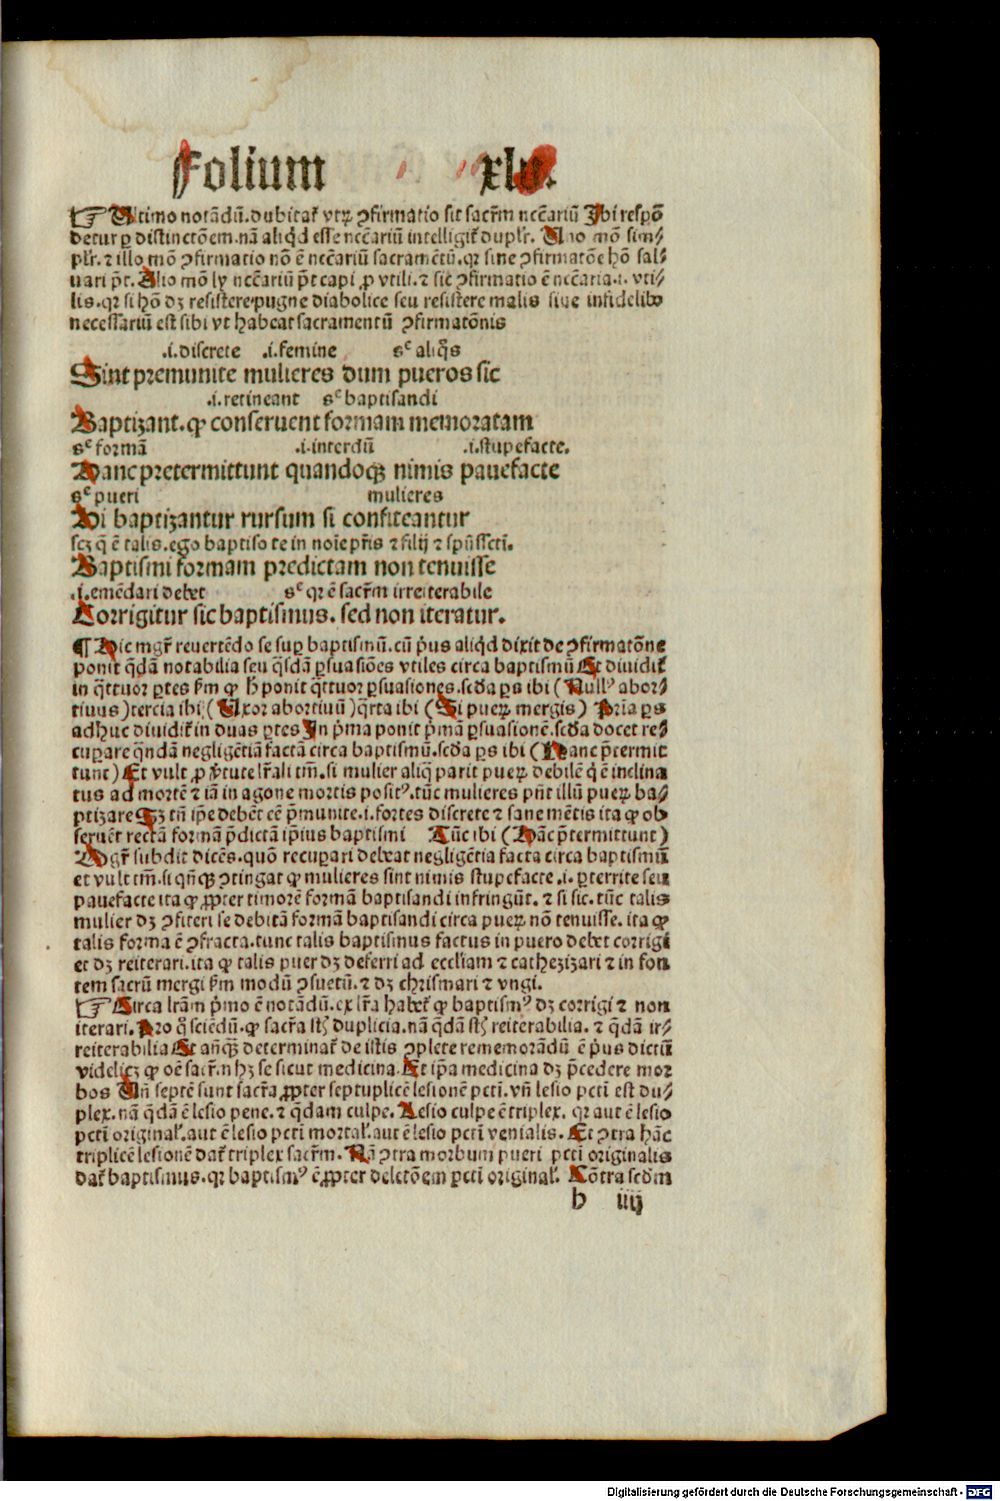 Folium xlv.
☞ Ultimo notādū. dubitat̉ vtꝝ ꝯfirmatio sit sacr̄m nccāriū Ibi respō
detur ꝑ distinctōem. nā aliq̇d esse nccāriū intelligit̉ duplr̄. Uno mō sim⸗
plr̄. ⁊ illo mō ꝯfirmatio nō ē nccāriū sacramētū. qꝛ sine ꝯfirmatōe hō sal⸗
uari pt̄. Alio mō ly nccāriū pt̄ capi ꝓ vtili. ⁊ sic ꝯfirmatio ē nccāria .i. vti⸗
lis. qꝛ si hō dꝫ resistere pugne diabolice seu resistere malis siue infidelibꝰ
necessariū est sibi vt habeat sacramentū ꝯfirmatōnis
.i. discrete .i. femine sᶜ aliq̄s
Sint premunite mulieres dum pueros sic
.i. retineant sᶜ baptisandi
Baptizant. ꝙ conseruent formam memoratam
sᶜ formā .i. interdū .i. stupefacte.
Hanc pretermittunt quandoqꝫ nimis pauefacte
sᶜ pueri mulieres
Hi baptizantur rursum si confiteantur
scꝫ q̄ ē talis. ego baptiso te in noīe pr̄is ⁊ filij ⁊ spūssctī.
Baptismi formam predictam non tenuisse
.i. emēdari debet sᶜ qꝛ ē sacr̄m irreiterabile
Corrigitur sic baptismus. sed non iteratur.
¶ Hic mgr̄ reuertēdo se suꝑ baptismū. cū p̓us aliq̇d dixit de ꝯfirmatōne
ponit q̄dā notabilia seu q̄sdā ꝑsuasiōes vtiles circa baptismū Et diuidit̉
in q̄ttuor ꝑtes ẜm ꝙ h̄ ponit q̄ttuor ꝑsuasiones. scd̄a ꝑs ibi (Nullꝰ abor⸗
tiuus) tercia ibi (Uxor abortiuū) q̄rta ibi (Si pueꝝ mergis) Pria ꝑs
adhuc diuidit̉ in duas ꝑtes In p̓ma ponit p̓mā ꝑsuasionē. scd̄a docet re⸗
cuꝑare q̄ndā negligētiā factā circa baptismū. scd̄a ꝑs ibi (Hanc p̄termit
tunt) Et vult ꝓ v̓tute lr̄ali tm̄. si mulier aliq̄ parit pueꝝ debilē q̇ ē inclina
tus ad mortē ⁊ iā in agone mortis positꝰ. tūc mulieres pn̄t illū pueꝝ ba⸗
ptizare Sꝫ tn̄ ip̄e debēt eē p̓munite .i. fortes discrete ⁊ sane mētis ita ꝙ ob
seruēt rectā formā p̄dictā ip̄ius baptismi Tūc ibi (Hāc p̄termittunt)
Mgr̄ subdit dicēs. quō recuꝑari debeat negligētia facta circa baptismū
et vult tm̄. si qn̄qꝫ ꝯtingat ꝙ mulieres sint nimis stupefacte .i. ꝑterrite seu
pauefacte ita ꝙ ꝓpter timorē formā baptisandi infringūt. ⁊ si sic. tūc talis
mulier dꝫ ꝯfiteri se debitā formā baptisandi circa pueꝝ nō tenuisse. ita ꝙ
talis forma ē ꝯfracta. tunc talis baptismus factus in puero debet corrigi
et dꝫ reiterari. ita ꝙ talis puer dꝫ deferri ad eccliam ⁊ cathezizari ⁊ in fon
tem sacrū mergi ẜm modū ꝯsuetū. ⁊ dꝫ chrismari ⁊ vngi.
☞ Circa lr̄am p̓mo ē notādū. ex lr̄a habet̉ ꝙ baptismꝰ dꝫ corrigi ⁊ non
iterari. Pro q̄ sciēdū. ꝙ sacr̄a st̄ duplicia. nā q̄dā st̄ reiterabilia. ⁊ q̄dā ir⸗
reiterabilia Et an̄qꝫ determinat̉ de istis ꝯplete rememorādū ē p̓us dictū
videlicꝫ ꝙ oē sacr̄m hꝫ se sicut medicina. Et ip̄a medicina dꝫ p̄cedere mor
bos Un̄ septē sunt sacr̄a ꝓpter septuplicē lesionē pctī. vn̄ lesio pctī est du⸗
plex. nā q̄dā ē lesio pene. ⁊ q̄dam culpe. Lesio culpe ē triplex. qꝛ aut ē lesio
pctī original̓. aut ē lesio pctī mortal̓. aut ē lesio pctī venialis. Et ꝯtra hāc
triplicē lesionē dat̉ triplex sacr̄m. Nā ꝯtra morbum pueri pctī originalis
dat̉ baptismus. qꝛ baptismꝰ ē ꝓpter deletōem pctī original̓. Cōtra scd̄m
h iiij
Digitalisierung gefördert durch die Deutsche Forschungsgemeinschaft - DFG